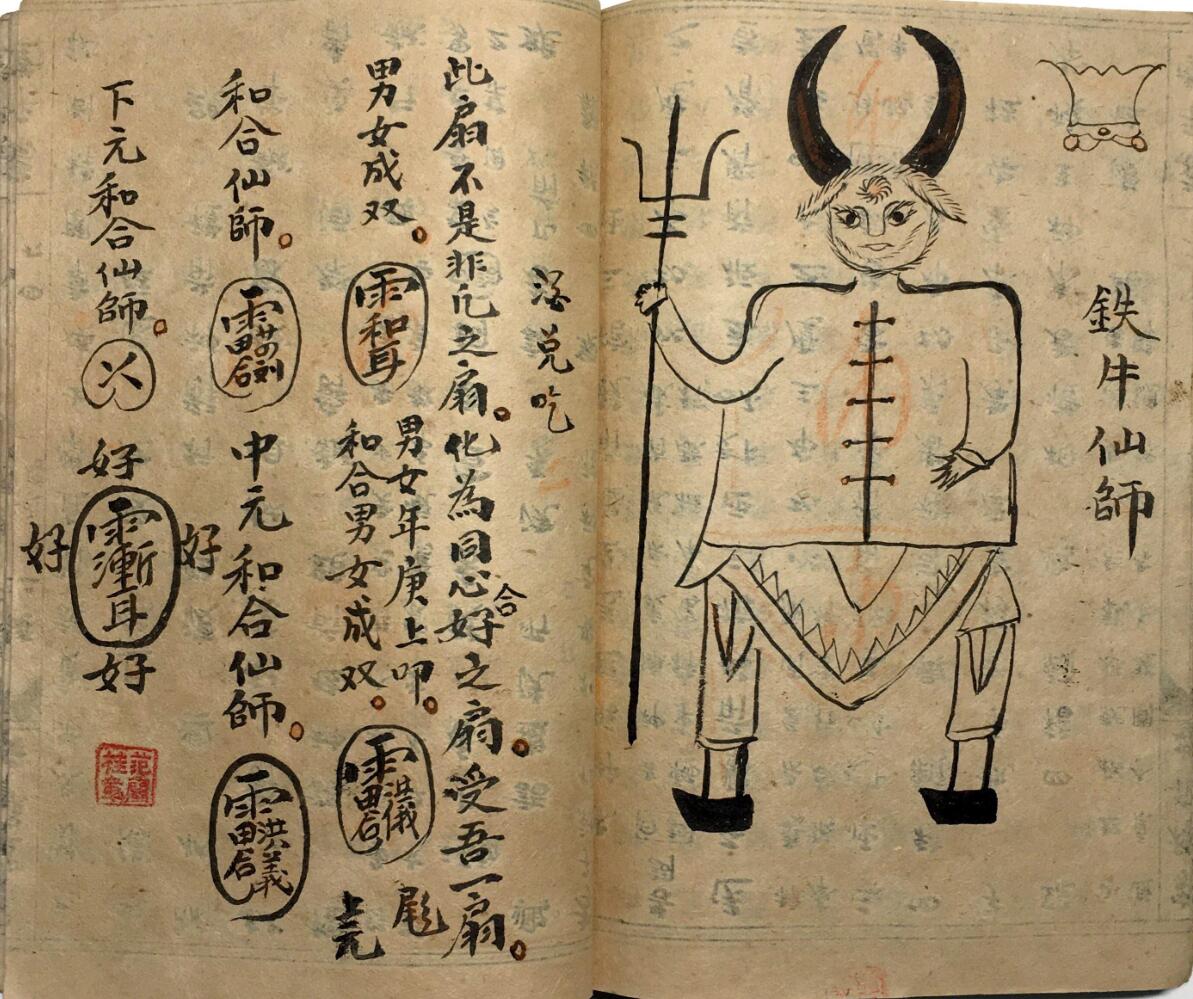 鉄牛仙師
兑吃
此扇不是非凡之扇。化為同心合好之扇。受吾一扇。
男女成双。雨和耳
男女年庚上叩。
和合男女成双。
洪儀
上元
和合仙師。
中元和合仙師。
洪義
下元和合仙師。
好
好
雨漸耳
好
好